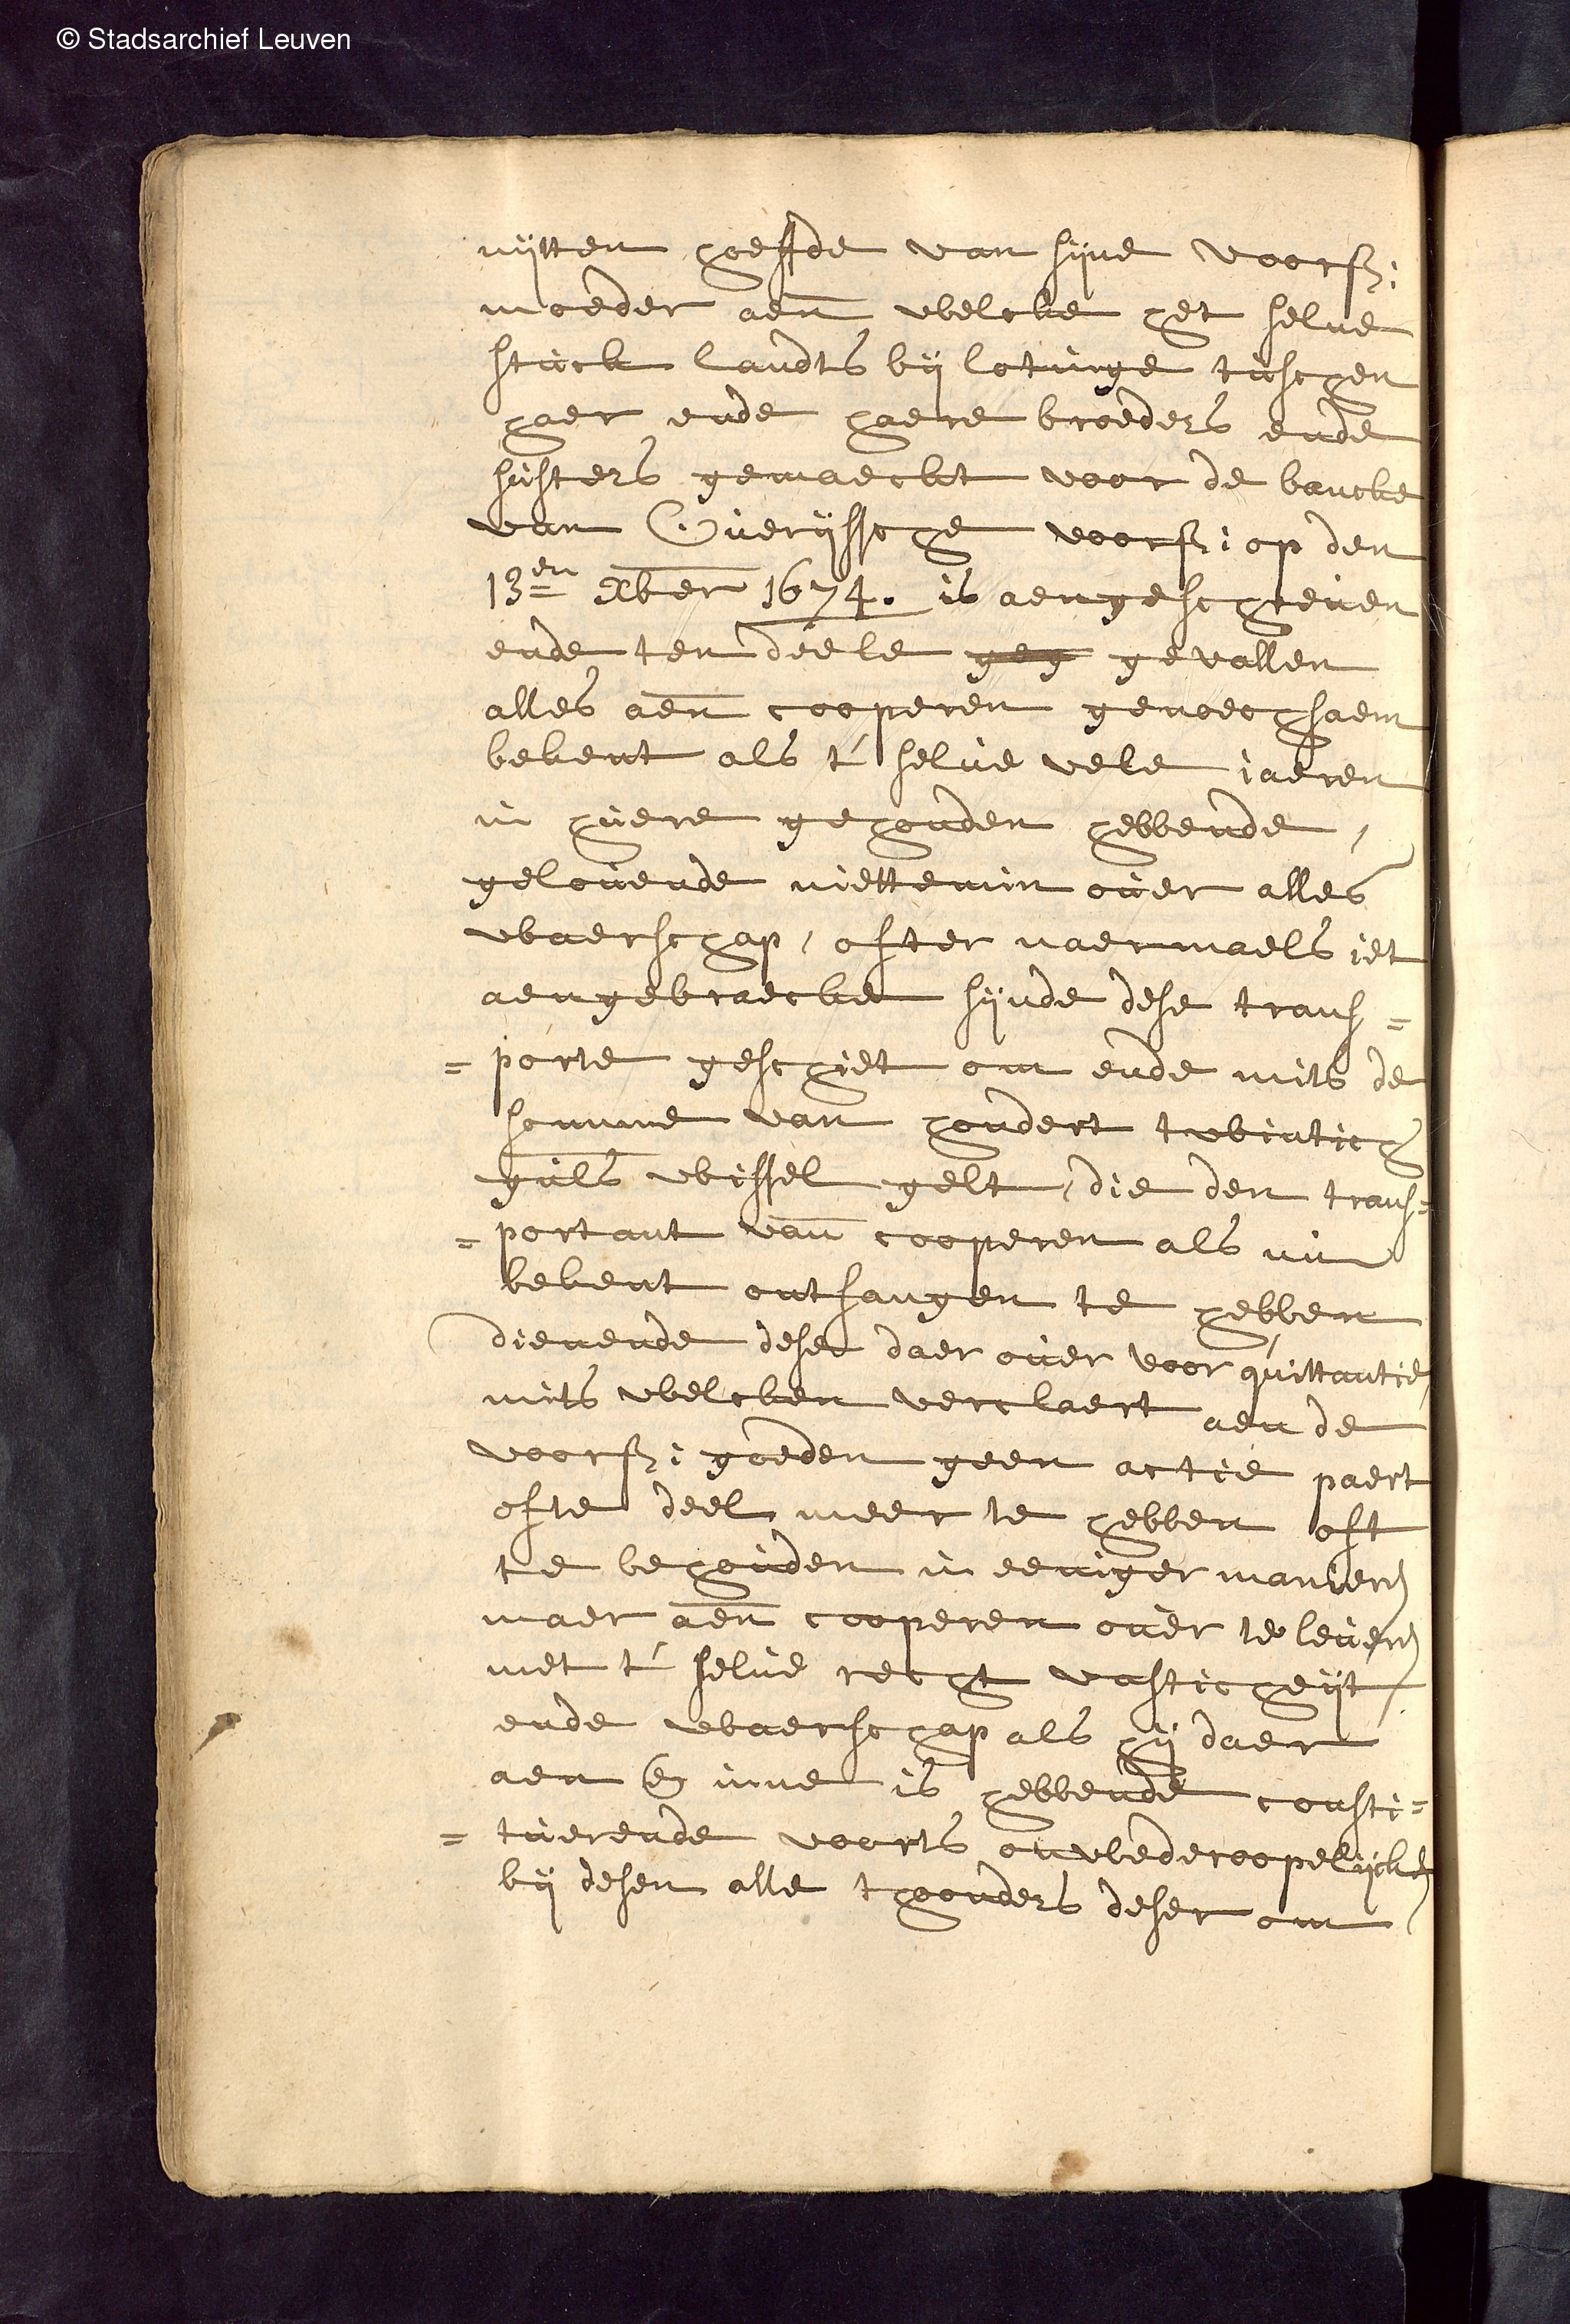 © Stadsarchief Leuven
uijtten hoeffde van sijne voors:
moeder aen welcke het selve
stuck landts bij lotinge tusschen
haer ende haere broeders ende
susters gemaeckt voor de bancke
van Overijssche voors: op den
13en xber 1674. is aengeschreven
ende ten deele geg gevallen
alles aen cooperen genoechsaem
bekent als t' selve vele jaeren
in huere gehouden hebbende,
gelovende niettemin over alles
waerschap, ofter naermaels iet
aengebraecke sijnde dese trans=
=porte geschiet om ende mits de
somme van hondert twintich
guls wissel gelt, die den trans=
=portant van cooperen als nu
bekent ontfangen te hebben
dienende dese daer over voor quittantie,
mits welcken verclaert aen de
voors: goeden geen actie paert
ofte deel meer te hebben oft
te behouden in eeniger manieren
maer aen cooperen over te leveren
met t' selve recht vasticheijt
ende waerschap als hij daer
aen en inne is hebbende consti=
=tuerende voorts onwederoopelijck
bij desen alle thoonders deser om